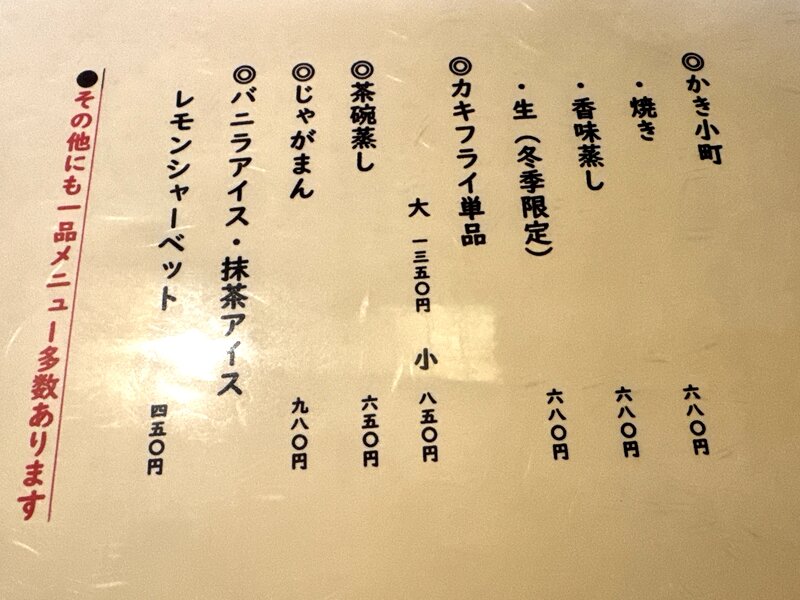 ◎かき小町 六八〇円
・焼き 六八〇円
・香味蒸し 六八〇円
・生（冬季限定）
◎カキフライ単品
大 一三五〇円 小 八五〇円
◎茶碗蒸し 六五〇円
◎じゃがまん 九八〇円
◎バニラアイス・抹茶アイス
レモンシャーベット 四五〇円
●その他にも一品メニュー多数あります